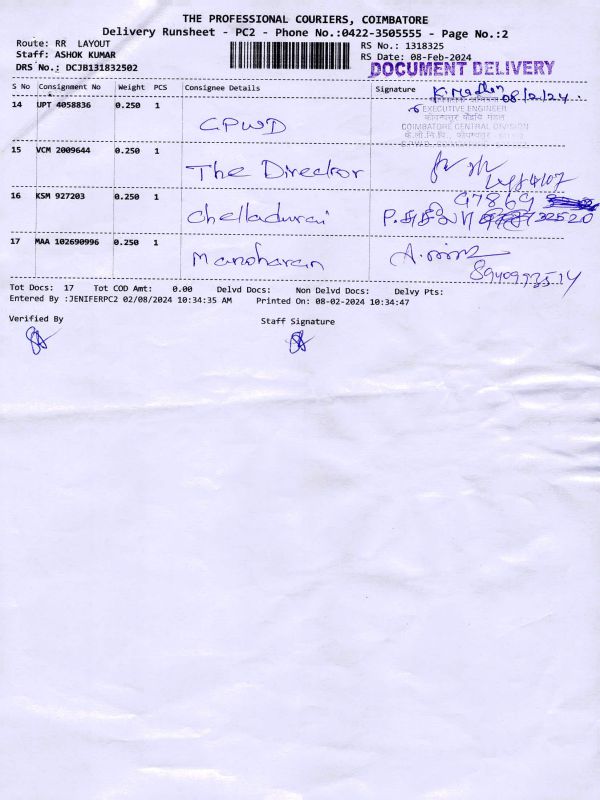 THE PROFESSIONAL COURIERS, COIMBATORE
Delivery Runsheet - PC2 - Phone No.:0422-3505555 - Page No.:2
Route: RR LAYOUT
RS No.: 1318325
Staff: ASHOK KUMAR
RS Date: 08-Feb-2024
DRS No.: DCJB131832502
DOCUMENT DELIVERY
S No Consignment No Weight PCS Consignee Details Signature
K. Madhan 08/2/24.
14 UPT 4058836 0.250 1 CPWD
EXECUTIVE ENGINEER
COIMBATORE CENTRAL DIVISION
15 VCM 2009644 0.250 1 The Director
16 KSM 927203 0.250 1 Chelladurai
97869
32520
17 MAA 102690996 0.250 1 Manoharan
8940993514
Tot Docs: 17 Tot COD Amt: 0.00 Delvd Docs: Non Delvd Docs: Delvy Pts:
Entered By :JENIFERPC2 02/08/2024 10:34:35 AM Printed On: 08-02-2024 10:34:47
Verified By Staff Signature